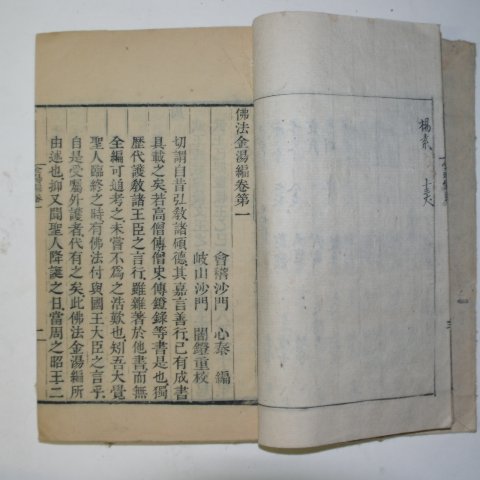 佛法金湯編卷第一
會稽沙門 心泰 編
岐山沙門 闇鐙重校
切謂自昔弘教諸碩德其嘉言善行已有成書
具載之矣若高僧傳僧史傳鐙錄等書是也獨
歷代護敎諸王臣之言行雖雜著於他書而無
全編可追考之未嘗不爲之浩歎也矧吾大覺
聖人臨終之時有佛法付與國王大臣之言乎
自是受屬外護者代有之矣此佛法金湯編所
由述也抑又聞聖人降誕之日當周之昭王二
金湯編卷一
二
楊素